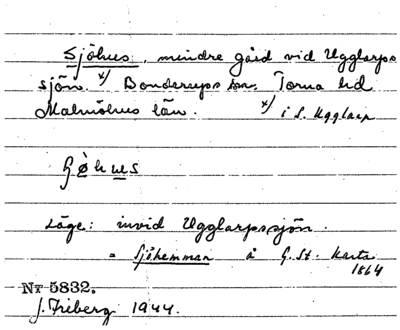 Sjöhus, mindre gård vid Ugglarps
sjön. x/ Bonderups sn. Torna hd
Malmöhus län. x/ i S. Ugglarp
Läge: invid Ugglarpssjön.
= Sjöhemman å G. St. karta
1864
Nr 5832.
J. Friberg 1944.